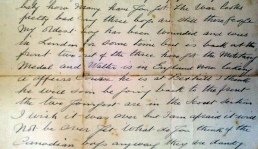 baby how many have you got the war looks
pretty bad my three boys are still there
My oldest boy has been wounded and was in
the hospital for some time but is back at the
front two out of the three have got the Military
Medal and Walter is in England now taking
officers he is at Bexhill I think
he will soon be going back to the front
the two youngest are in the
I wish it was over but I am afraid it will
Not be over yet What do you think of the
Canadian boys anyway they are dandy